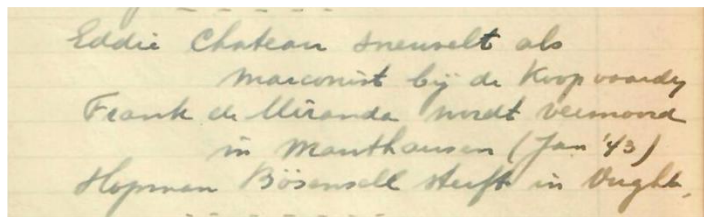 Eddie Chateau sneuvelt als
marconist bij de Koopvaardij
Frank de Miranda wordt vermoord
in Manthausen (Jan '43)
Hopman Bösensell sterft in Vught.